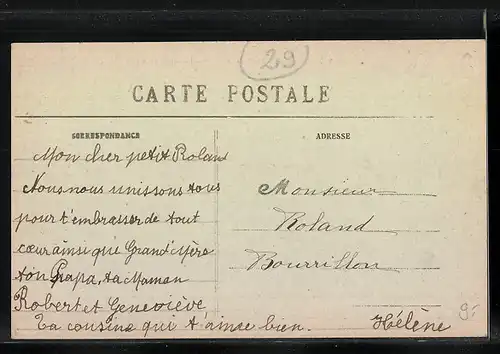 29
CARTE POSTALE
CORRESPONDANCE
Mon cher petit Roland
Nous nous unissons tous
pour t'embrasser de tout
cœur ainsi que Grand'Mère
ton Papa, ta Maman
Robert et Geneviève
Ta cousine qui t'aime bien. Hélène
ADRESSE
Monsieur
Roland
Bourrillon